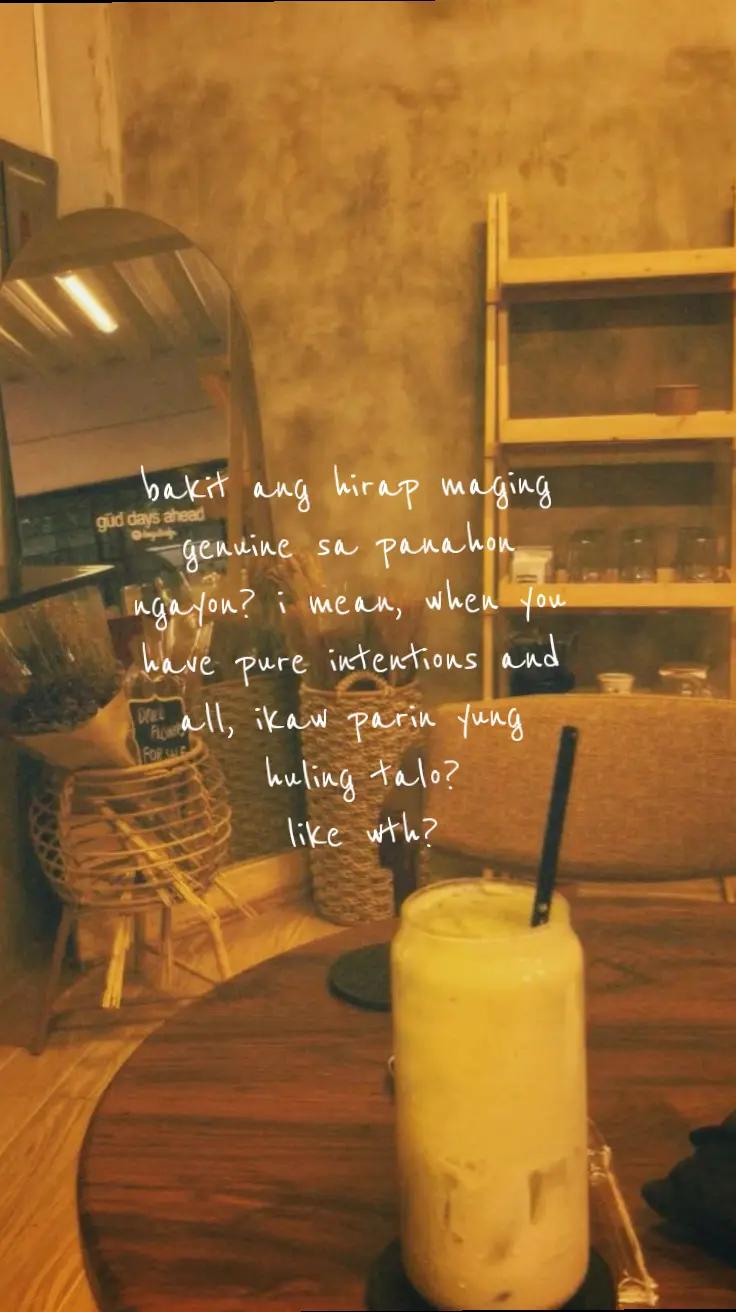 bakit ang hirap maging
genuine sa panahon
ngayon? i mean, when you
have pure intentions and
all, ikaw parin yung
huling talo?
like wth?
güd days ahead
DRIED
FLOWERS
FOR SALE